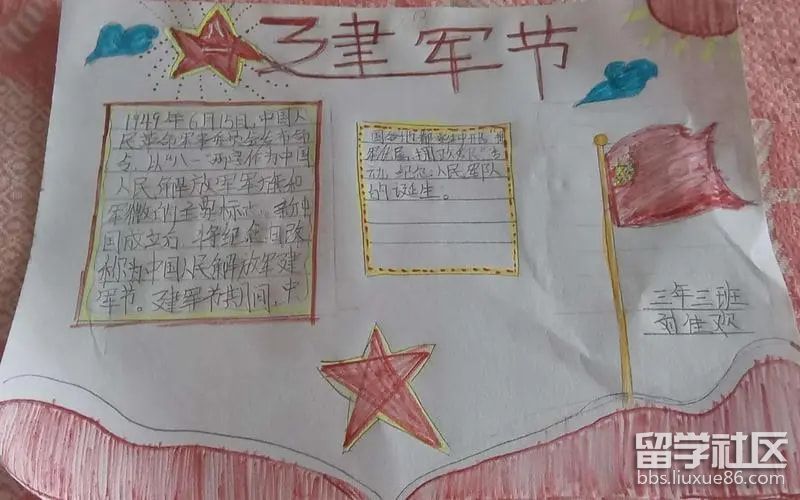 建军节
八一
1949年6月15日,中国人
民革命军事委员会发布命
令,以"八一"两字作为中国
人民解放军军旗和
军徽的主要标志。新中
国成立后,将纪念日改
称为中国人民解放军建
军节。建军节期间,中
国各地都
动,纪念人民军队
的诞生。
三年三班
刘佳欢
留学社区
bbs.liuxue86.com